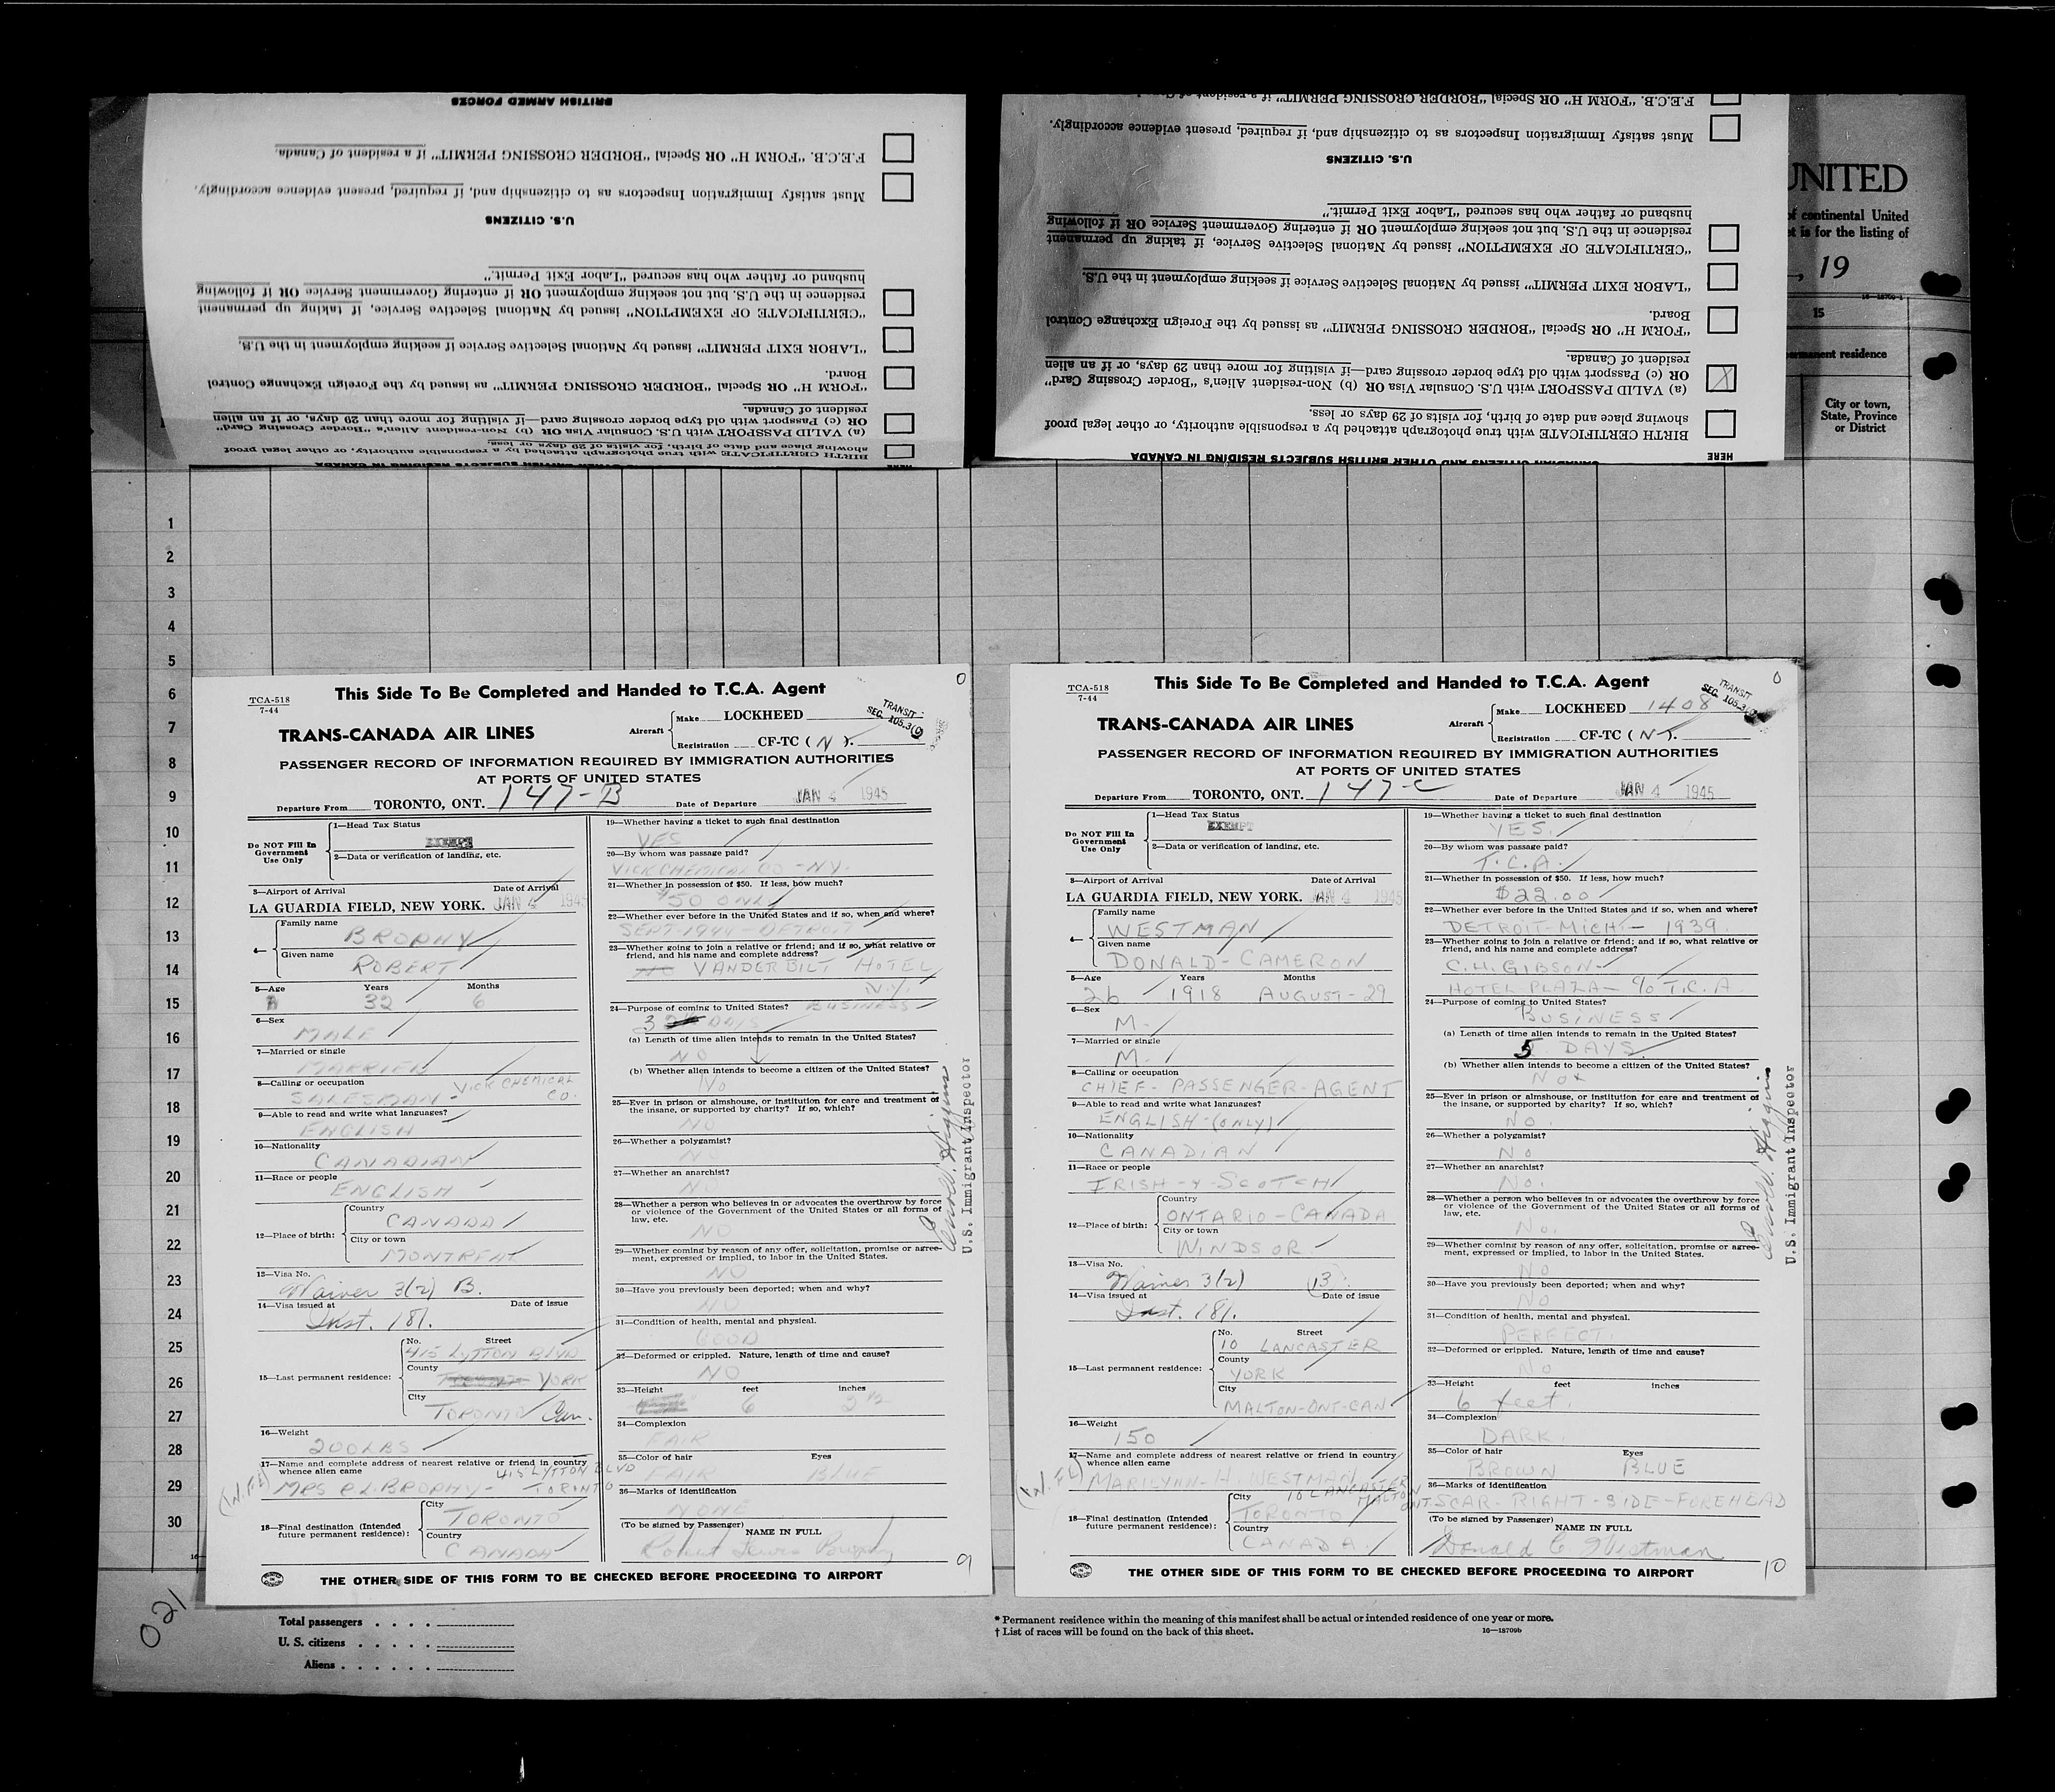 BRITISH ARMED FORCES
F.E.C.B. "FORM H" OR Special "BORDER CROSSING PERMIT" if a resident of Canada.
Must satisfy Immigration Inspectors as to citizenship and, if required, present evidence accordingly.
U.S. CITIZENS
husband or father who has secured "Labor Exit Permit."
residence in the U.S. but not seeking employment OR if entering Government Service OR if following
"CERTIFICATE OF EXEMPTION" issued by National Selective Service, if taking up permanent
"LABOR EXIT PERMIT" issued by National Selective Service if seeking employment in the U.S.
Board.
"FORM H" OR Special "BORDER CROSSING PERMIT" as issued by the Foreign Exchange Control
resident of Canada.
OR (c) Passport with old type border crossing card—if visiting for more than 29 days, or if an alien
(a) VALID PASSPORT with U.S. Consular Visa OR (b) Non-resident Alien's "Border Crossing Card"
showing place and date of birth, for visits of 29 days or less.
BIRTH CERTIFICATE with true photograph attached by a responsible authority, or other legal proof
HERE
F.E.C.B. "FORM H" OR Special "BORDER CROSSING PERMIT" if a resident of Canada
Must satisfy Immigration Inspectors as to citizenship and, if required, present evidence accordingly.
U.S. CITIZENS
husband or father who has secured "Labor Exit Permit."
residence in the U.S. but not seeking employment OR if entering Government Service OR if following
"CERTIFICATE OF EXEMPTION" issued by National Selective Service, if taking up permanent
"LABOR EXIT PERMIT" issued by National Selective Service if seeking employment in the U.S.
Board.
"FORM H" OR Special "BORDER CROSSING PERMIT" as issued by the Foreign Exchange Control
resident of Canada.
OR (c) Passport with old type border crossing card—if visiting for more than 29 days, or if an alien
(a) VALID PASSPORT with U.S. Consular Visa OR (b) Non-resident Alien's "Border Crossing Card"
X
showing place and date of birth, for visits of 29 days or less.
BIRTH CERTIFICATE with true photograph attached by a responsible authority, or other legal proof
CANADIAN CITIZENS AND OTHER BRITISH SUBJECTS RESIDING IN CANADA
HERE
UNITED
of continental United
is for the listing of
, 19
15
permanent residence
City or town,
State, Province
or District
1
2
3
4
5
6
7
8
9
10
11
12
13
14
15
16
17
18
19
20
21
22
23
24
25
26
27
28
29
30
TCA-518
7-44
This Side To Be Completed and Handed to T.C.A. Agent
0
TRANS-CANADA AIR LINES
Aircraft
Make LOCKHEED
Registration CF-TC ( N ).
TRANSIT
SEC. 105.3(
PASSENGER RECORD OF INFORMATION REQUIRED BY IMMIGRATION AUTHORITIES
AT PORTS OF UNITED STATES
Departure From TORONTO, ONT. 147-B Date of Departure JAN 4 1945
Do NOT Fill In
Government
Use Only
1—Head Tax Status
EXEMPT
2—Data or verification of landing, etc.
3—Airport of Arrival Date of Arrival
LA GUARDIA FIELD, NEW YORK. JAN 4 1945
4—
Family name
BROPHY
Given name
ROBERT
5—Age Years Months
32 6
6—Sex
MALE
7—Married or single
MARRIED
8—Calling or occupation
SALESMAN - VICK CHEMICAL CO.
9—Able to read and write what languages?
ENGLISH
10—Nationality
CANADIAN
11—Race or people
ENGLISH
12—Place of birth:
Country
CANADA
City or town
MONTREAL
13—Visa No.
Waiver 3(2) B.
14—Visa issued at Date of issue
Inst. 181.
15—Last permanent residence:
No. Street
415 LYTTON BLVD
County
YORK
City
TORONTO Can.
16—Weight
200 LBS
17—Name and complete address of nearest relative or friend in country
whence alien came 415 LYTTON BLVD
(WIFE) MRS R.L. BROPHY - TORONTO
18—Final destination (Intended
future permanent residence):
City
TORONTO
Country
CANADA
19—Whether having a ticket to such final destination
YES
20—By whom was passage paid?
VICK CHEMICAL CO - N.Y.
21—Whether in possession of $50. If less, how much?
$50 ONLY
22—Whether ever before in the United States and if so, when and where?
SEPT-1944 - DETROIT
23—Whether going to join a relative or friend; and if so, what relative or
friend, and his name and complete address?
VANDERBILT HOTEL
N.Y.
24—Purpose of coming to United States? BUSINESS
3 DAYS
(a) Length of time alien intends to remain in the United States?
NO
(b) Whether alien intends to become a citizen of the United States?
NO
25—Ever in prison or almshouse, or institution for care and treatment of
the insane, or supported by charity? If so, which?
NO
26—Whether a polygamist?
NO
27—Whether an anarchist?
NO
28—Whether a person who believes in or advocates the overthrow by force
or violence of the Government of the United States or all forms of
law, etc.
NO
29—Whether coming by reason of any offer, solicitation, promise or agree-
ment, expressed or implied, to labor in the United States.
NO
30—Have you previously been deported; when and why?
NO
31—Condition of health, mental and physical.
GOOD
32—Deformed or crippled. Nature, length of time and cause?
NO
33—Height feet inches
6
34—Complexion
FAIR
35—Color of hair Eyes
FAIR BLUE
36—Marks of identification
NONE
(To be signed by Passenger)
NAME IN FULL
Robert Lewis Brophy
9
U.S. Immigrant Inspector
THE OTHER SIDE OF THIS FORM TO BE CHECKED BEFORE PROCEEDING TO AIRPORT
TCA-518
7-44
This Side To Be Completed and Handed to T.C.A. Agent
0
TRANS-CANADA AIR LINES
Aircraft
Make LOCKHEED 1408
Registration CF-TC ( N ).
TRANSIT
SEC. 105.3(
PASSENGER RECORD OF INFORMATION REQUIRED BY IMMIGRATION AUTHORITIES
AT PORTS OF UNITED STATES
Departure From TORONTO, ONT. 147-C Date of Departure JAN 4 1945
Do NOT Fill In
Government
Use Only
1—Head Tax Status
EXEMPT
2—Data or verification of landing, etc.
3—Airport of Arrival Date of Arrival
LA GUARDIA FIELD, NEW YORK. JAN 4 1945
4—
Family name
WESTMAN
Given name
DONALD-CAMERON
5—Age Years Months
26 1918 AUGUST-29
6—Sex
M.
7—Married or single
M.
8—Calling or occupation
CHIEF-PASSENGER-AGENT
9—Able to read and write what languages?
ENGLISH-(ONLY)
10—Nationality
CANADIAN
11—Race or people
IRISH-&-SCOTCH
12—Place of birth:
Country
ONTARIO-CANADA
City or town
WINDSOR.
13—Visa No.
Waiver 3(2) B.
14—Visa issued at Date of issue
Inst. 181.
15—Last permanent residence:
No. Street
10 LANCASTER
County
YORK
City
MALTON-ONT-CAN
16—Weight
150
17—Name and complete address of nearest relative or friend in country
whence alien came
(WIFE) MARILYNN-H. WESTMAN
10 LANCASTER
MALTON ONT.
18—Final destination (Intended
future permanent residence):
City
TORONTO
Country
CANADA.
19—Whether having a ticket to such final destination
YES.
20—By whom was passage paid?
T.C.A.
21—Whether in possession of $50. If less, how much?
$22.00
22—Whether ever before in the United States and if so, when and where?
DETROIT-MICH- 1939.
23—Whether going to join a relative or friend; and if so, what relative or
friend, and his name and complete address?
C.H. GIBSON-
HOTEL PLAZA- c/o T.C.A.
24—Purpose of coming to United States?
BUSINESS
(a) Length of time alien intends to remain in the United States?
5 DAYS.
(b) Whether alien intends to become a citizen of the United States?
NO
25—Ever in prison or almshouse, or institution for care and treatment of
the insane, or supported by charity? If so, which?
NO.
26—Whether a polygamist?
NO
27—Whether an anarchist?
NO.
28—Whether a person who believes in or advocates the overthrow by force
or violence of the Government of the United States or all forms of
law, etc.
NO.
29—Whether coming by reason of any offer, solicitation, promise or agree-
ment, expressed or implied, to labor in the United States.
NO
30—Have you previously been deported; when and why?
NO
31—Condition of health, mental and physical.
PERFECT.
32—Deformed or crippled. Nature, length of time and cause?
NO
33—Height feet inches
6 feet.
34—Complexion
DARK.
35—Color of hair Eyes
BROWN BLUE
36—Marks of identification
SCAR-RIGHT-SIDE-FOREHEAD
(To be signed by Passenger)
NAME IN FULL
Donald C Westman
10
U.S. Immigrant Inspector
THE OTHER SIDE OF THIS FORM TO BE CHECKED BEFORE PROCEEDING TO AIRPORT
021
Total passengers
U. S. citizens
Aliens
* Permanent residence within the meaning of this manifest shall be actual or intended residence of one year or more.
† List of races will be found on the back of this sheet.
16—18709b